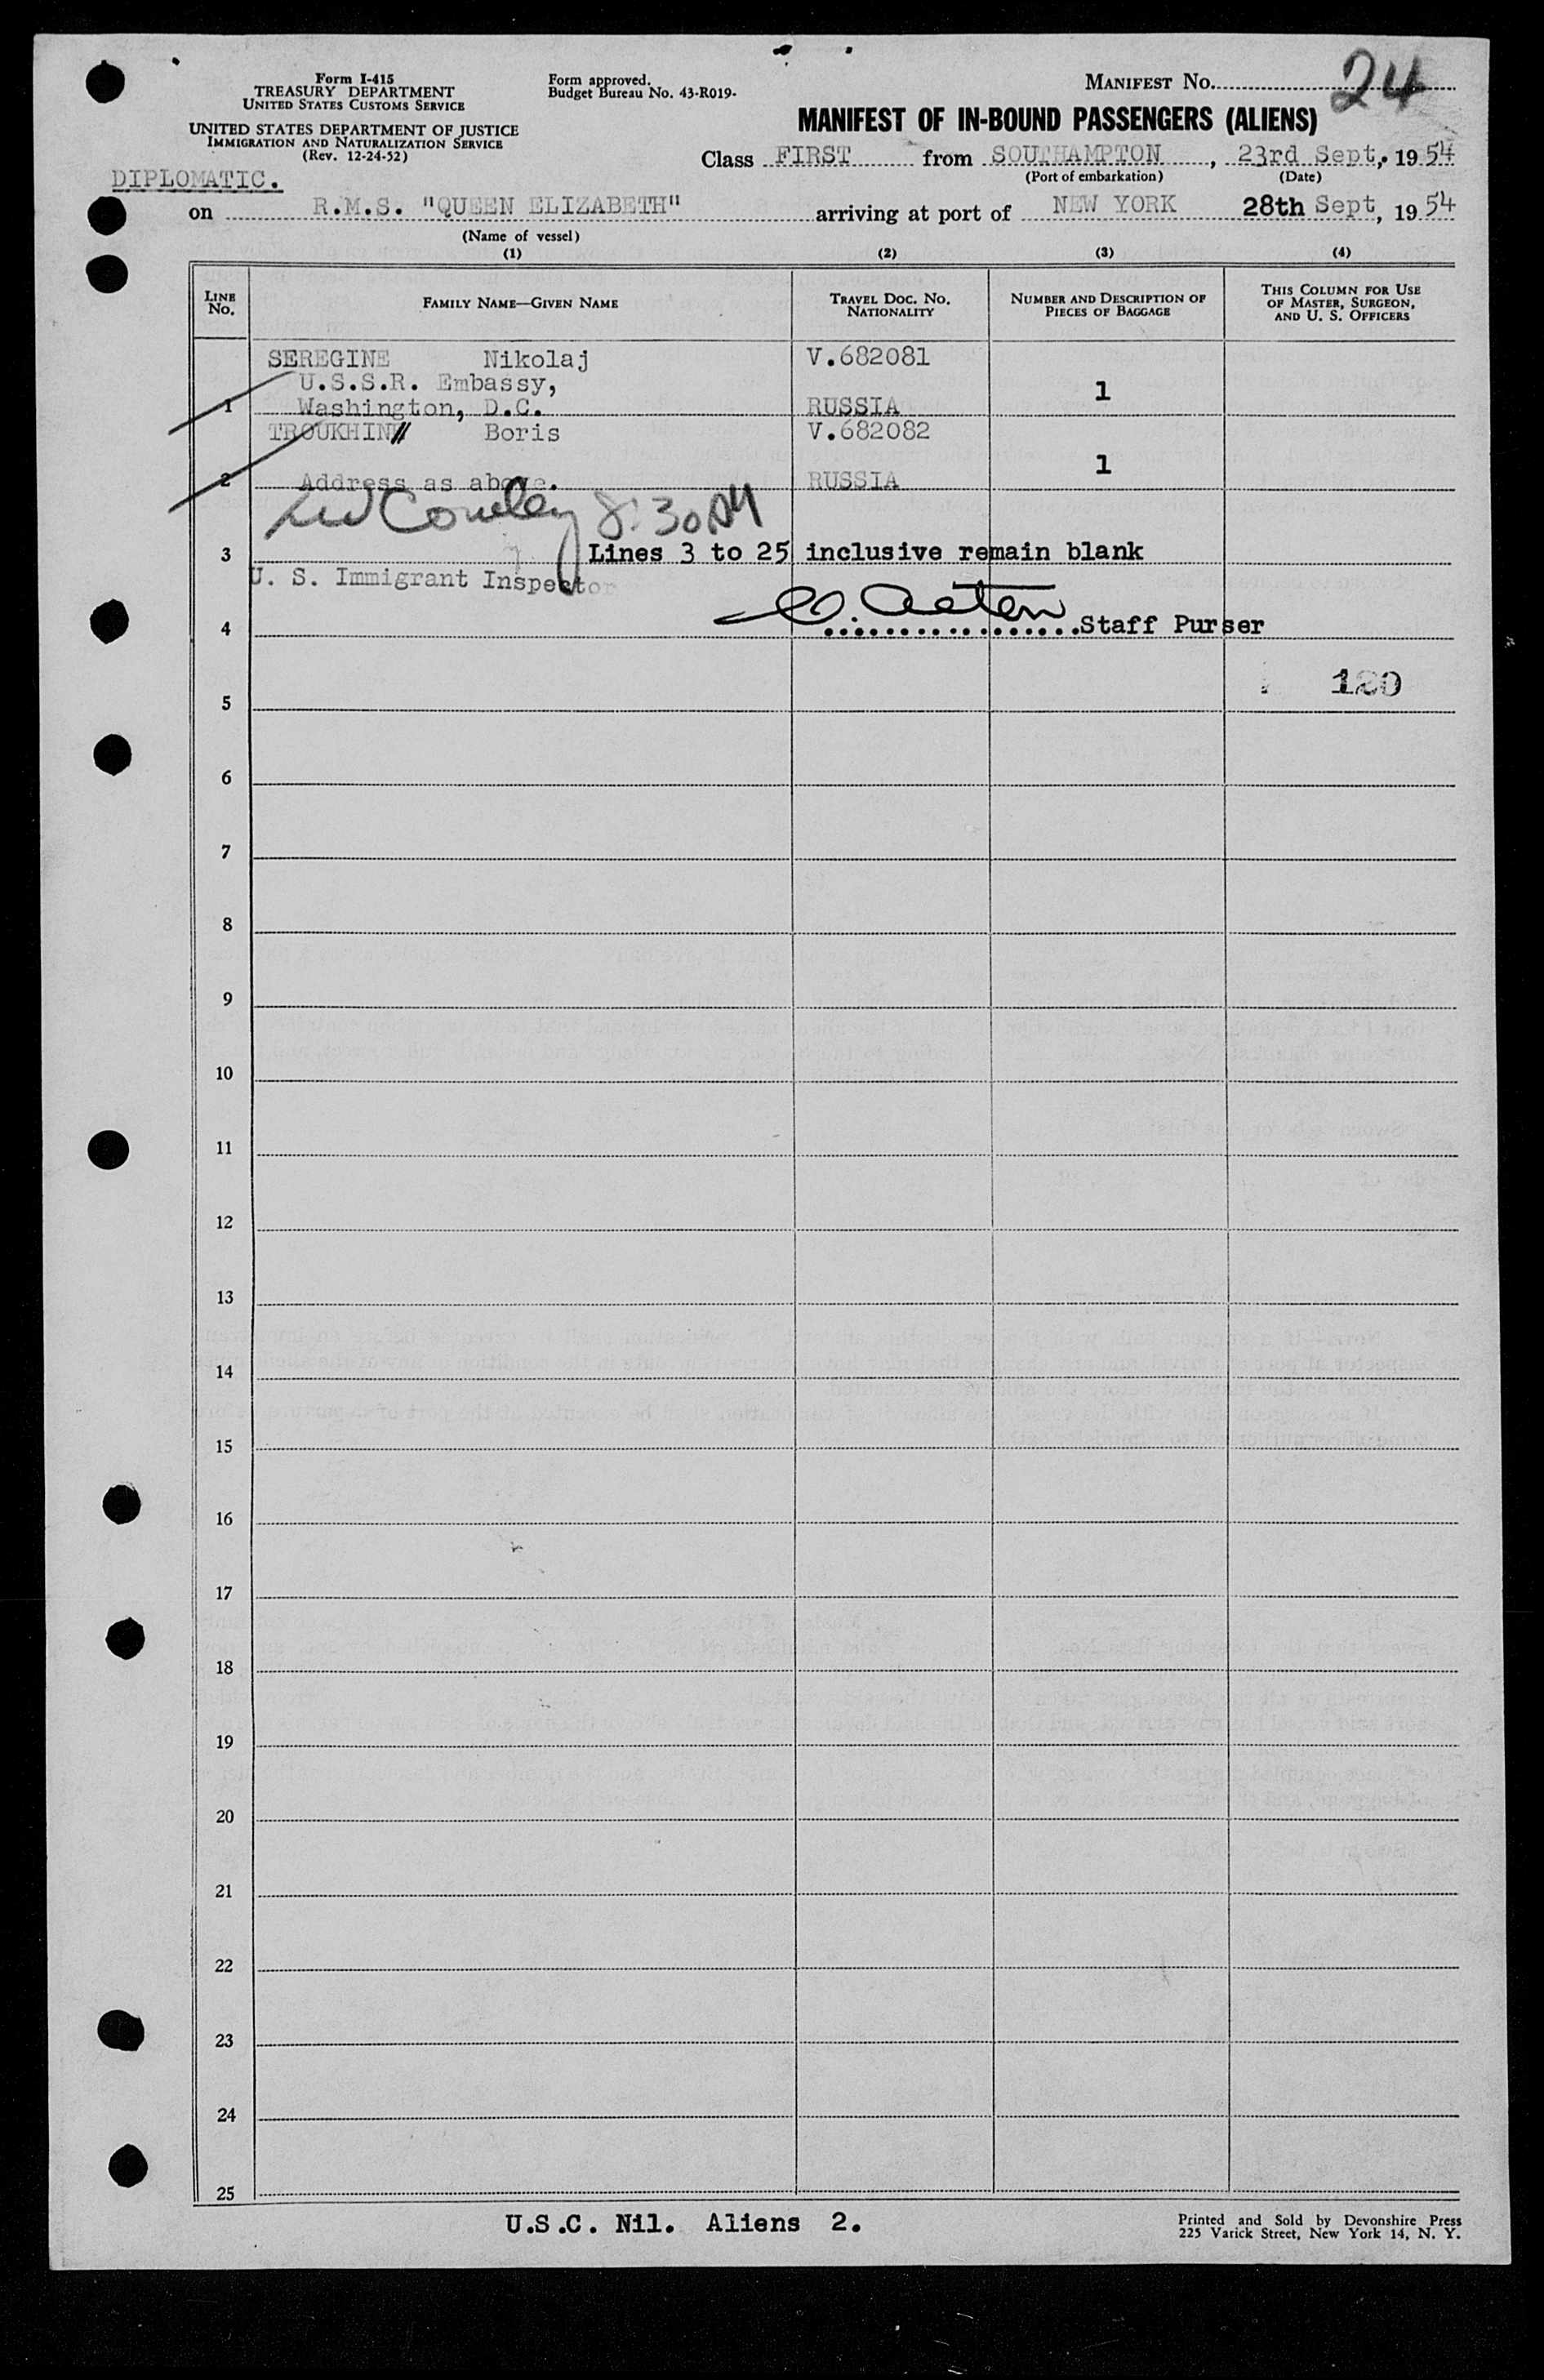 Form I-415
TREASURY DEPARTMENT
UNITED STATES CUSTOMS SERVICE
UNITED STATES DEPARTMENT OF JUSTICE
IMMIGRATION AND NATURALIZATION SERVICE
(Rev. 12-24-52)
Form approved.
Budget Bureau No. 43-R019-
MANIFEST No. 24
MANIFEST OF IN-BOUND PASSENGERS (ALIENS)
Class FIRST from SOUTHAMPTON, 23rd Sept, 1954
(Port of embarkation) (Date)
DIPLOMATIC.
on R.M.S. "QUEEN ELIZABETH" arriving at port of NEW YORK 28th Sept, 1954
(Name of vessel)
(1) (2) (3) (4)
LINE No. FAMILY NAME—GIVEN NAME TRAVEL DOC. No. NATIONALITY NUMBER AND DESCRIPTION OF PIECES OF BAGGAGE THIS COLUMN FOR USE OF MASTER, SURGEON, AND U. S. OFFICERS
SEREGINE Nikolaj V.682081
U.S.S.R. Embassy, 1
1 Washington, D.C. RUSSIA
TROUKHIN Boris V.682082
1
2 Address as above. RUSSIA
8:30 AM
3 Lines 3 to 25 inclusive remain blank
U. S. Immigrant Inspector
4 Staff Purser
120
5
6
7
8
9
10
11
12
13
14
15
16
17
18
19
20
21
22
23
24
25
U.S.C. Nil. Aliens 2.
Printed and Sold by Devonshire Press
225 Varick Street, New York 14, N. Y.